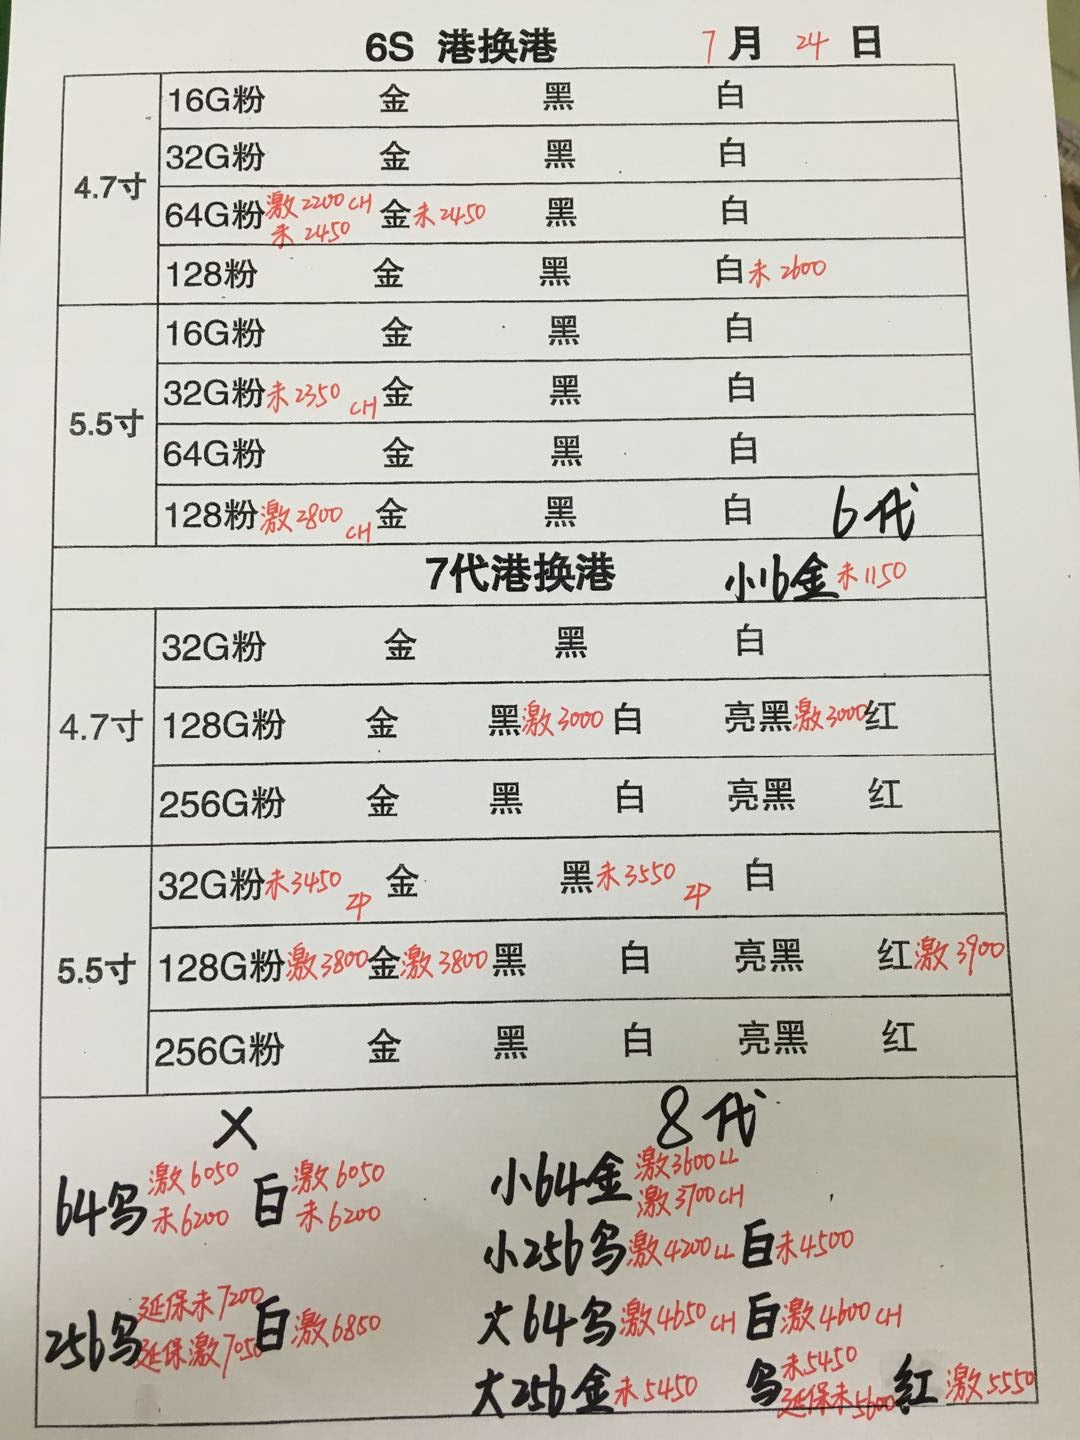 6S 港换港 7月 24 日
4.7寸
16G粉 金 黑 白
32G粉 金 黑 白
64G粉 激2200 CH 未2450 金 未2450 黑 白
128粉 金 黑 白 未2600
5.5寸
16G粉 金 黑 白
32G粉 未2350 CH 金 黑 白
64G粉 金 黑 白
128粉 激2800 CH 金 黑 白
6代
7代港换港 小16金 未1150
4.7寸
32G粉 金 黑 白
128G粉 金 黑 激3000 白 亮黑 激3000 红
256G粉 金 黑 白 亮黑 红
5.5寸
32G粉 未3450 ZP 金 黑 未3550 ZP 白
128G粉 激3800 金 激3800 黑 白 亮黑 红 激3900
256G粉 金 黑 白 亮黑 红
X
64乌 激6050 未6200 白 激6050 未6200
256乌 延保未7200 延保激7050 白 激6850
8代
小64金 激3600 LL 激3700 CH
小256乌 激4200 LL 白 未4500
大64乌 激4650 CH 白 激4600 CH
大256金 未5450 乌 未5450 延保未5600 红 激5550